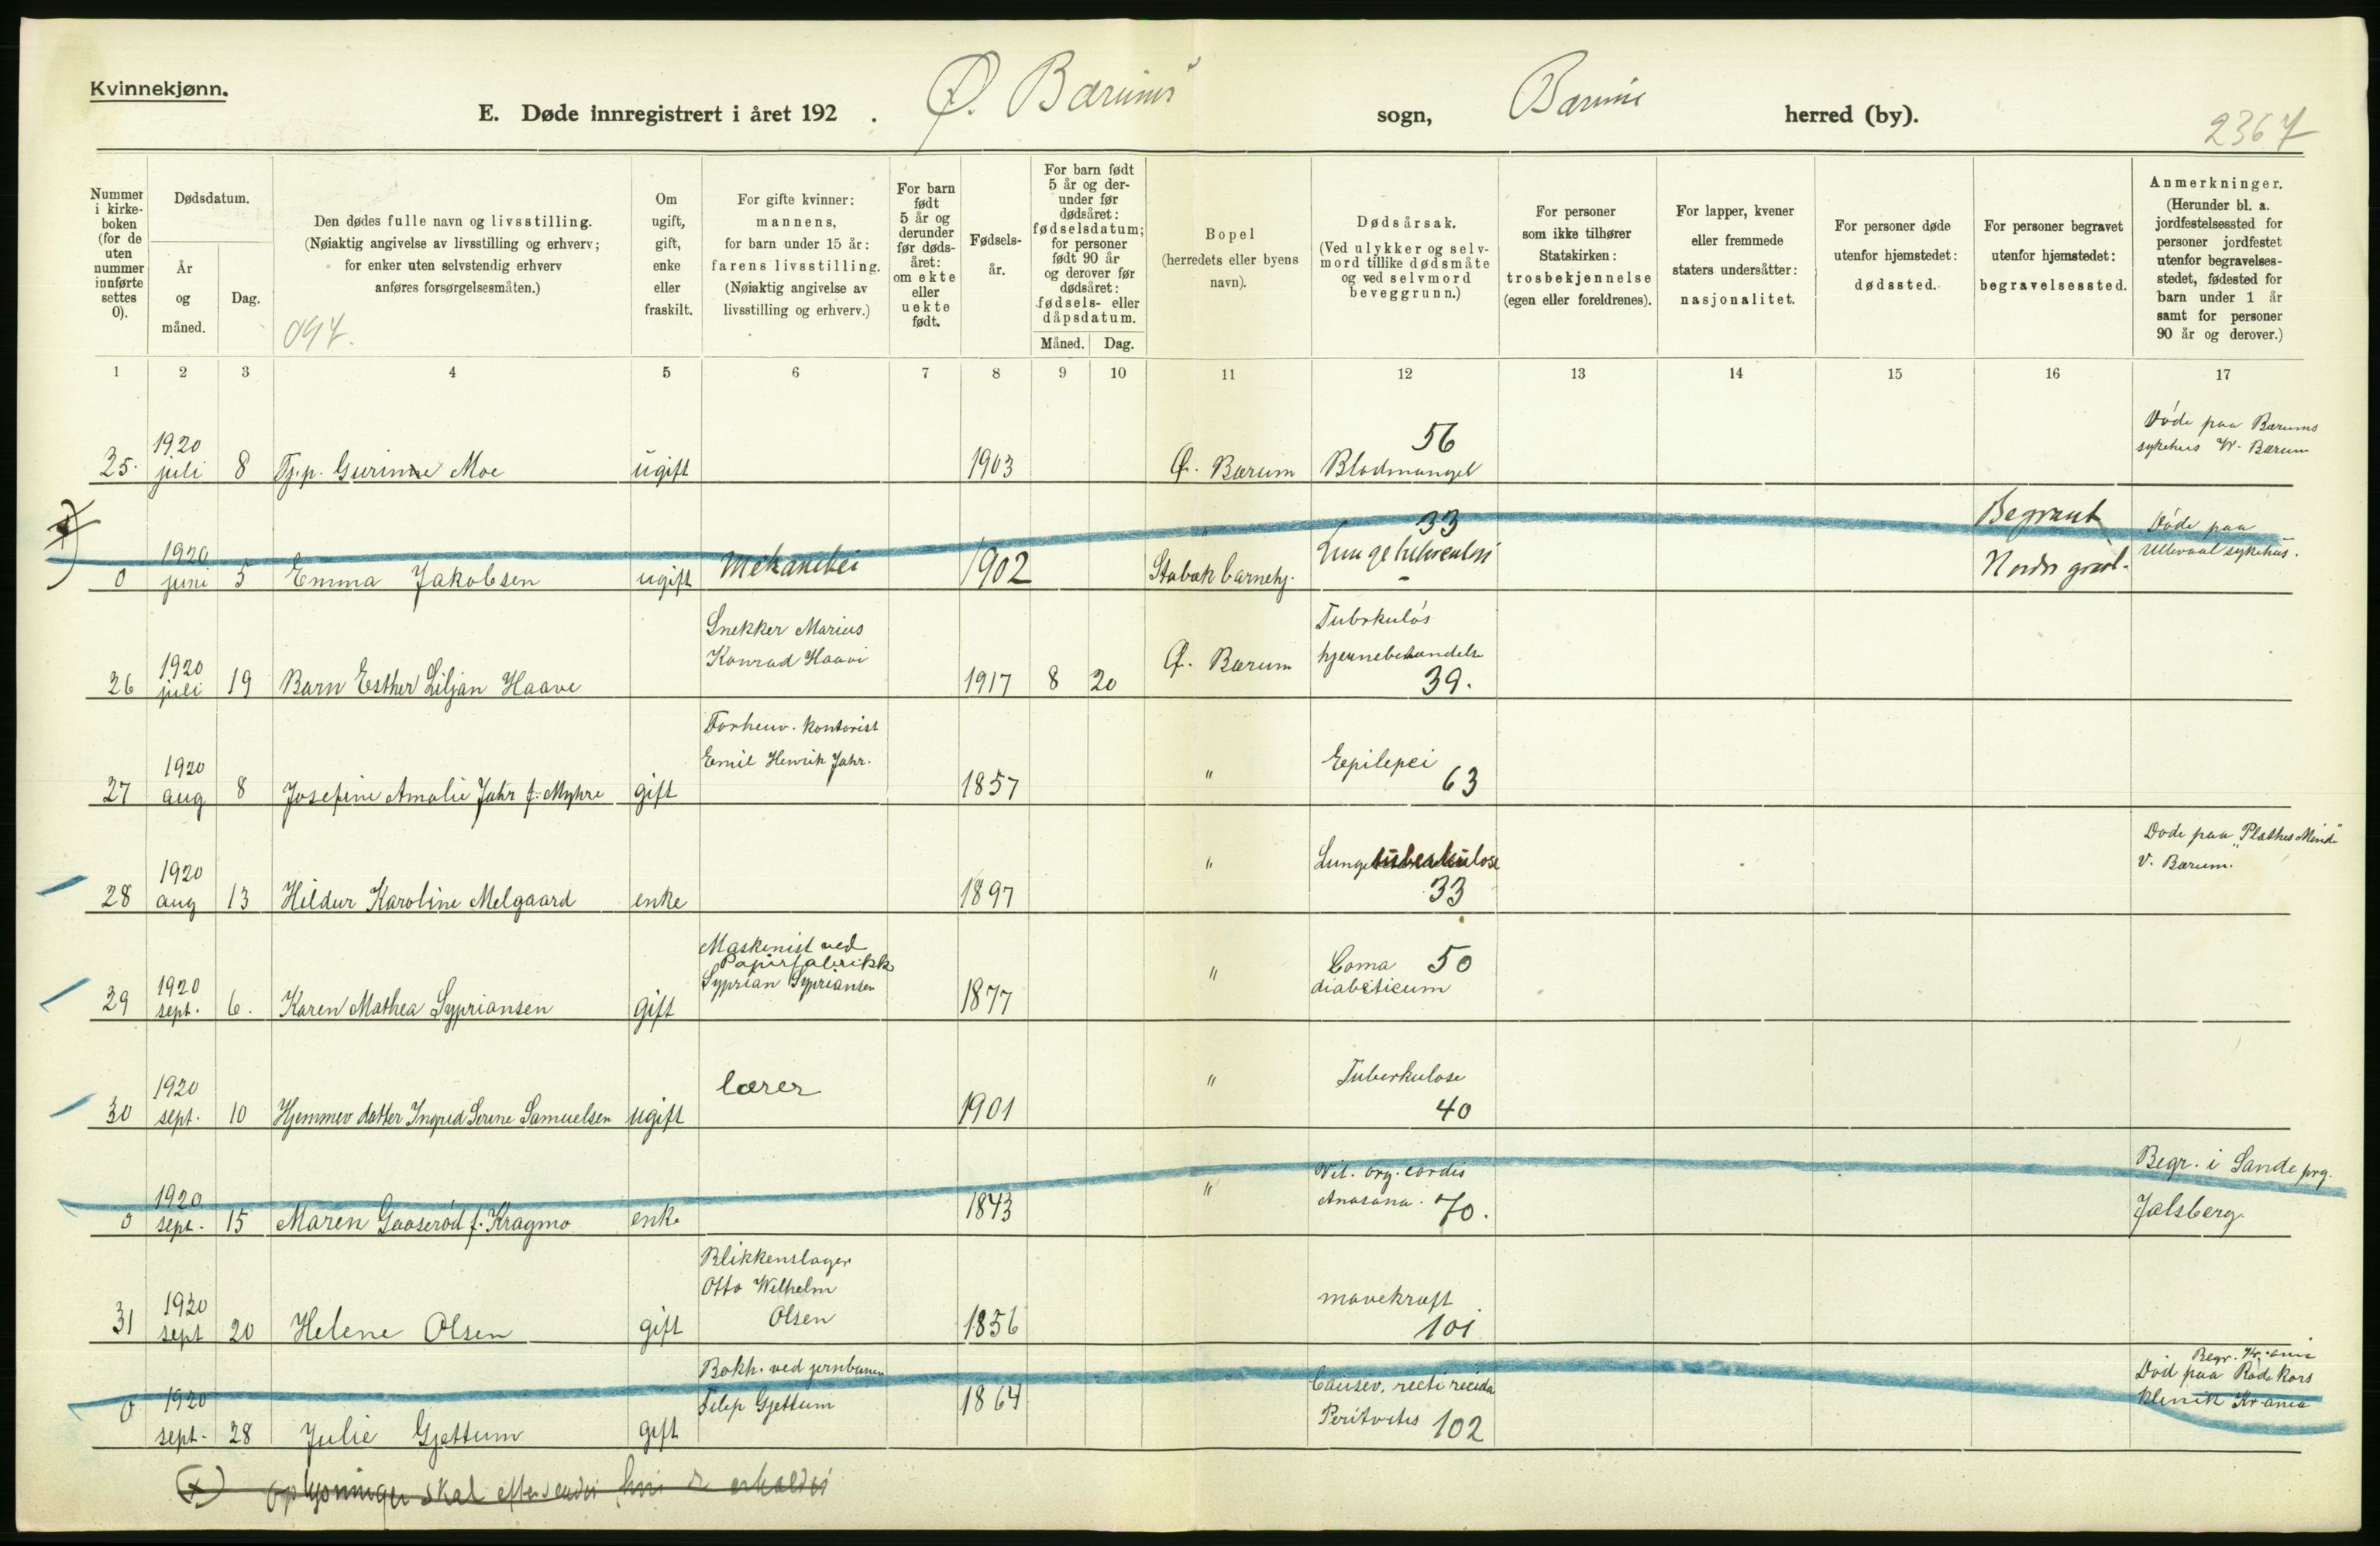 Kvinnekjønn.
E. Døde innregistrert i året 192 . Ø. Bærums sogn, Bærums herred (by).
2367
Nummer i kirkeboken (for de uten nummer innførte settes 0).
Dødsdatum.
År og måned.
Dag.
Den dødes fulle navn og livsstilling.
(Nøiaktig angivelse av livsstilling og erhverv;
for enker uten selvstendig erhverv
anføres forsørgelsesmåten.)
Om ugift, gift, enke eller fraskilt.
For gifte kvinner: mannens, for barn under 15 år: farens livsstilling. (Nøiaktig angivelse av livsstilling og erhverv.)
For barn født 5 år og derunder før dødsåret: om ekte eller uekte født.
Fødselsår.
For barn født 5 år og derunder før dødsåret: fødselsdatum; for personer født 90 år og derover før dødsåret: fødsels- eller dåpsdatum.
Måned. Dag.
Bopel (herredets eller byens navn).
Dødsårsak. (Ved ulykker og selvmord tillike dødsmåte og ved selvmord beveggrunn.)
For personer som ikke tilhører Statskirken: trosbekjennelse (egen eller foreldrenes).
For lapper, kvener eller fremmede staters undersåtter: nasjonalitet.
For personer døde utenfor hjemstedet: dødssted.
For personer begravet utenfor hjemstedet: begravelsessted.
Anmerkninger. (Herunder bl. a. jordfestelsessted for personer jordfestet utenfor begravelsesstedet, fødested for barn under 1 år samt for personer 90 år og derover.)
1 2 3 4 5 6 7 8 9 10 11 12 13 14 15 16 17
25. 1920 juli 8 Tj.p. Gurine Moe ugift 1903 Ø. Bærum Blodmangel 56 Døde paa Bærums sykehus V. Bærum
0 1920 juni 5 Emma Jakobsen ugift 1902 Stabæk barnehj. 33 Lungetuberculosi Begravet Nordre gravl. Døde paa Ullevaal sykehus.
26 1920 juli 19 Barn Esther Liljan Haave Snekker Marius Konrad Haave 1917 8 20 Ø. Bærum Tuberkuløs 39.
27 1920 aug 8 Josefine Amalie Jahr f. Myhre gift Forhenv. kontorist Emil Henrik Jahr. 1857 " Epilepci 63
28 1920 aug 13 Hildur Karoline Melgaard enke 1897 " Lungetuberkulose 33 Døde paa "Plathes Minde" V. Bærum.
29 1920 sept. 6. Karen Mathea Sypriansen gift Maskinist ved Papirfabrikk Syprian Sypriansen 1877 " Coma diabeticum 50
30 1920 sept. 10 Hjemmev datter Ingrid Serine Samuelsen ugift lærer 1901 " Tuberkulose 40
0 1920 sept. 15 Maren Gaaserød f. Kragmo enke 1843 " Vit. org. cordis Anasarca. 70. Begr. i Sande prg. Jalsberg
31 1920 sept 20 Helene Olsen gift Blikkenslager Otto Wilhelm Olsen 1856 mavekræft 101
0 1920 sept. 28 Julie Gjettum gift Bokh. ved jernbanen Filip Gjettum 1864 recti recida Peritotis 102 Begr. Kr.ania Død paa Røde Kors Klinik Kr ania
(x) oplysninger skal eftersendes hvis de erholdes